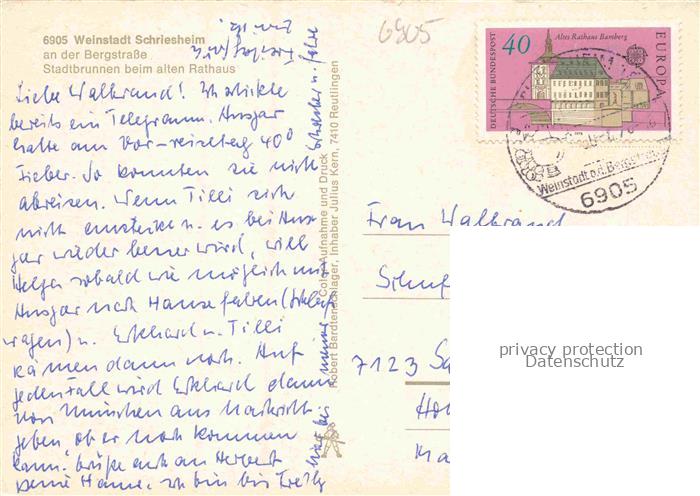 6905 Weinstadt Schriesheim
an der Bergstraße
Stadtbrunnen beim alten Rathaus
6905
Liebe Walbrand! Ich schickte
bereits ein Telegramm. Ansgar
hatte am Vor-reisetag 40°
Fieber. So konnten sie nicht
abreisen. Wenn Tilli sich
nicht ansteckt u. es bei Ans-
gar wieder besser wird, will
Helga sobald wie möglich mit
Ansgar nach Hause fahren (Schlaf-
wagen) u. Ekkhard u. Tilli
kämen dann nach. Auf
jeden Fall wird Ekkhard dann
von München aus Nachricht
geben, ob er noch kommen
kann. Grüße auch an Herbert
Deine Hanne. Ich bin bis Freitg
Color-Aufnahme und Druck
Robert Bardtenschlager, Inhaber Julius Kern, 7410 Reutlingen
DEUTSCHE BUNDESPOST
40
Altes Rathaus Bamberg
EUROPA
Weinstadt a.d. Bergstraße
6905
Frau Walbrand
7123
privacy protection
Datenschutz